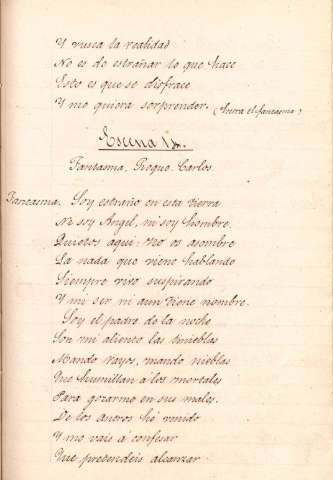 Y busca la realidad
No es de estrañar lo que hace
Esto es que se disfrace
Y me quiera sorprender. (Entra el fantasma)
Escena
Fantasma. Roque. Carlos.
Fantasma. Soy estraño en esta tierra
Ni soy Angel, ni soy hombre.
Quietos aqui: no os asombre
La nada que viene hablando
Siempre vivo suspirando
Y mi ser ni aun tiene nombre.
Soy el padre de la noche
Son mi aliento las tinieblas
Mando rayos, mando nieblas
Que humillan á los mortales
Para gozarme en sus males.
De los averos hé venido
Y me vais á confesar
Que pretendeis alcanzar